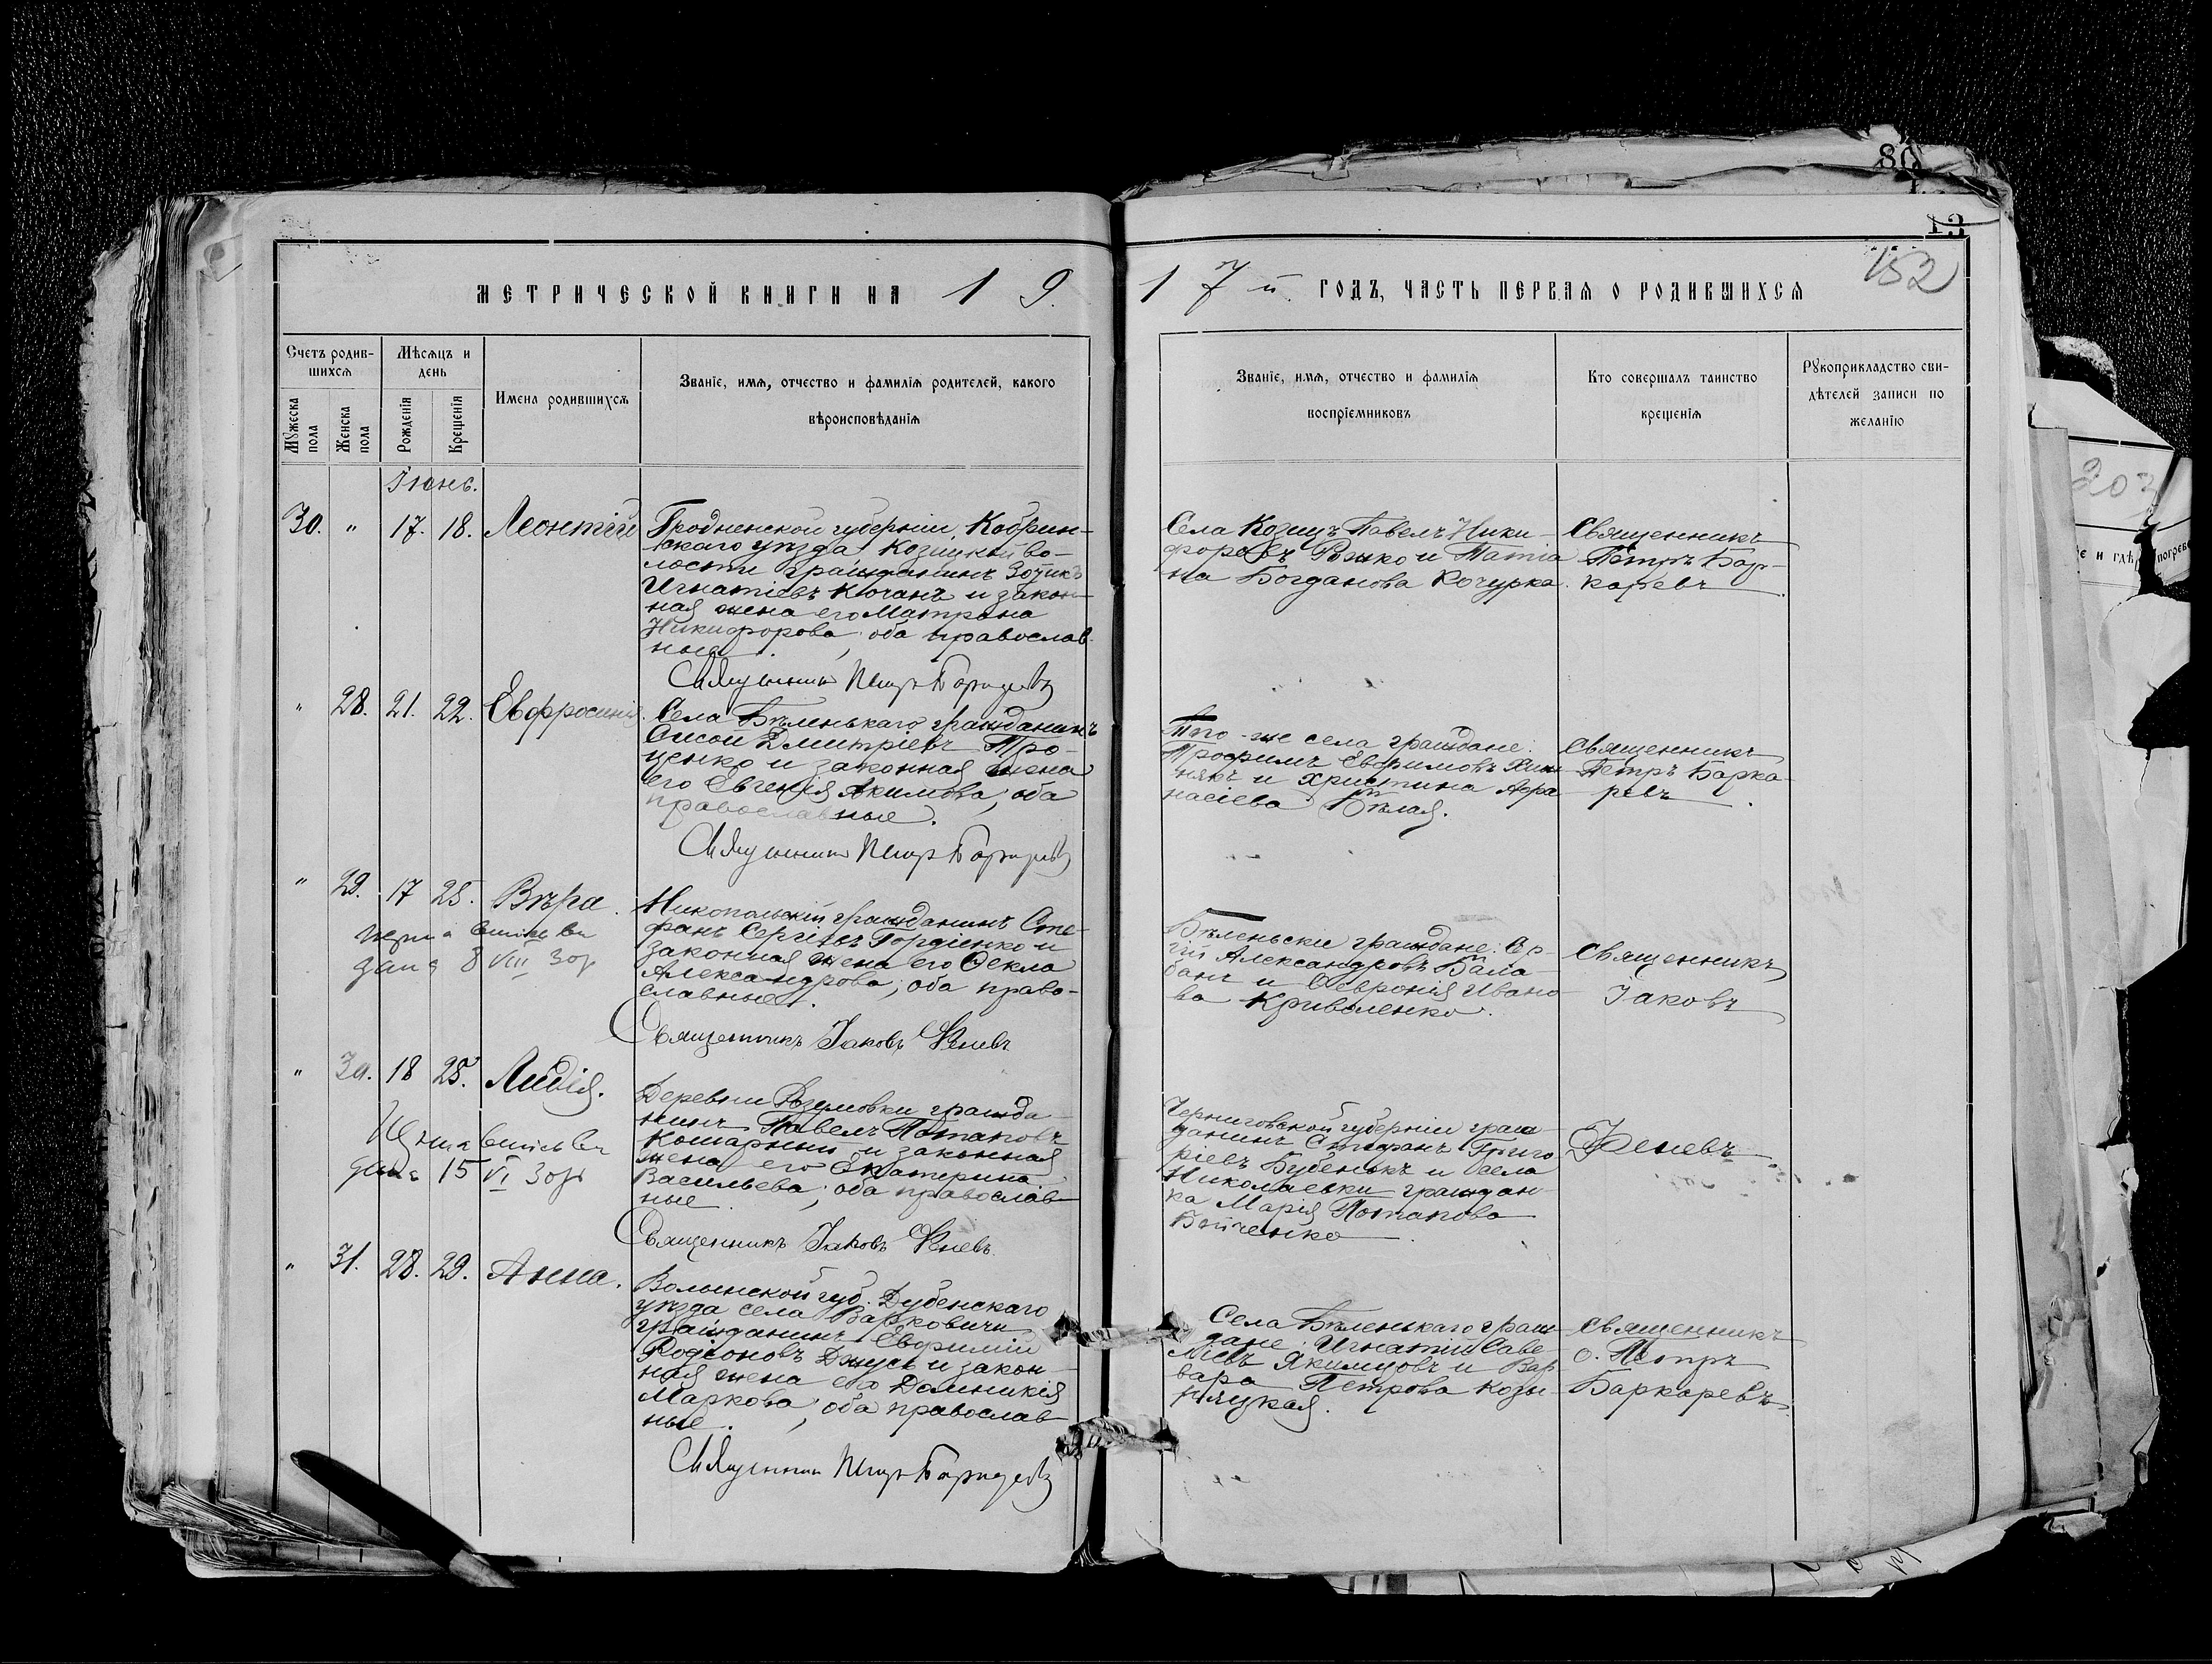 80
13
152
МЕТРИЧЕСКОЙ КНИГИ НА 1 9.
1 7 й. ГОДЪ, ЧАСТЬ ПЕРВАЯ О РОДИВШИХСЯ
Счетъ родив-
шихся
Мужеска пола
Женска пола
Мѣсяцъ и
день
Рожденія
Крещенія
Имена родившихся
Званіе, имя, отчество и фамилія родителей, какого
вѣроисповѣданія
Званіе, имя, отчество и фамилія
воспріемниковъ
Кто совершалъ таинство
крещенія
Рукоприкладство сви-
дѣтелей записи по
желанію
Іюнь.
30. " 17. 18. Леонтій
Гродненской губерніи, Кобрин-
скаго уѣзда Козицкой во-
лости гражданинъ Зотикъ
Игнатіевъ Кочанъ и закон-
ная жена его Матрона
Никифорова; оба православ-
ные.
Священникъ Петръ Баркаревъ
Села Козищъ Павелъ Ники-
форовъ и Татіа
на Богданова Кочурка.
Священникъ
Петръ Бар-
каревъ.
" 28. 21. 22. Евфросинія.
Села Бѣленькаго гражданинъ
Сисой Дмитріевъ Про-
ценко и законная жена
его Евгенія Акимова; оба
православные.
Священникъ Петръ Баркаревъ
Того-же села граждане:
Трофимъ Ефимовъ
и Христина Афа-
насіева Бѣлая.
Священникъ
Петръ Барка-
ревъ.
" 29. 17 25. Вѣра.
дана 8 VIII 30р
Никопольскій гражданинъ Сте-
фанъ Сергіевъ Гордіенко и
законная жена его Ѳекла
Александрова; оба право-
славные.
Священникъ Іаковъ Феневъ
Бѣленьскіе граждане: Сер-
гій Александровъ Бала-
банъ и Февронія Ивано-
ва Криволенко.
Священникъ
Іаковъ
" 30. 18 25. Лидія.
дана 15 VI 30р
Деревни гражда-
нинъ Павелъ Потаповъ
Кошарный и законная
жена его Екатерина
Васильева; оба православ-
ные.
Священникъ Іаковъ Феневъ.
Черниговской губерніи граж-
данинъ Стефанъ Григо-
ріевъ Бубенокъ и села
Николаевки граждан-
ка Марія Потапова
Бойченко.
Феневъ.
" 31. 28. 29. Анна.
Волынской губ. Дубенскаго
уѣзда села Варковичи
гражданинъ Евфимій
Родіоновъ Джусь и закон-
ная жена его Домникія
Маркова; оба православ-
ные.
Священникъ Петръ Баркаревъ
Села Бѣленькаго граж-
дане: Игнатій Саве-
ліевъ Якимцовъ и Вар-
вара Петрова Козы-
ряцкая.
Священникъ
о. Петръ
Баркаревъ.
203